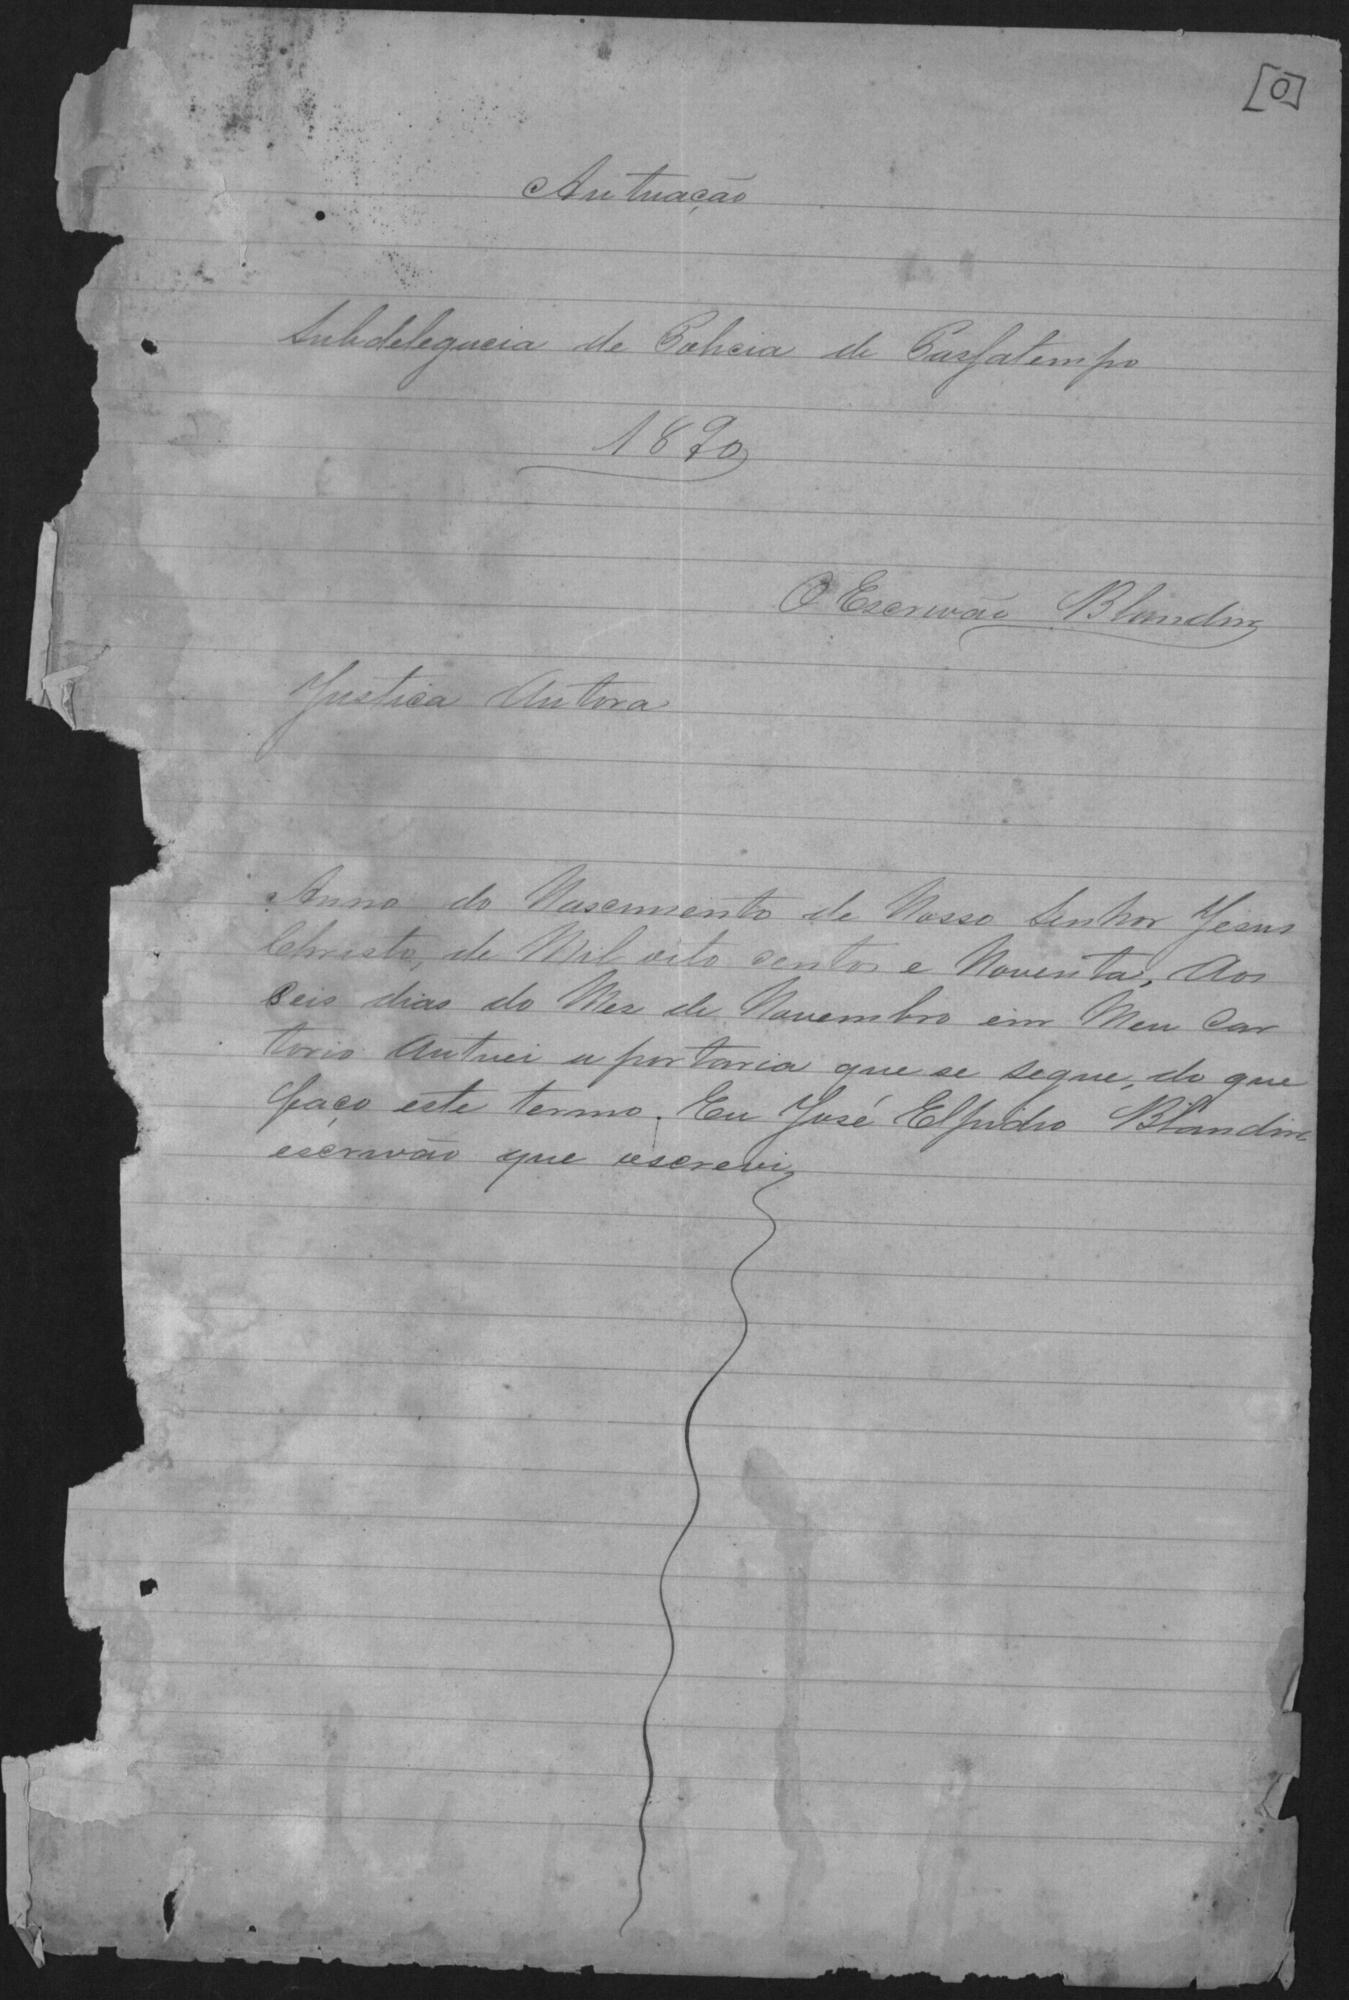 [0]
Autuação
Subdelegacia de Policia de Passatempo
1890
O Escrivão Blandin
Justica Autora
Anno do Nascimento de Nosso Senhor Jesus
Christo, de Mil oito centos e Noventa, Aos
seis dias do Mez de Novembro em Meu Car
torio Autuei a portaria que se segue, do que
faço este termo. Eu José Elpidio Blandin
escrivão que escrevi